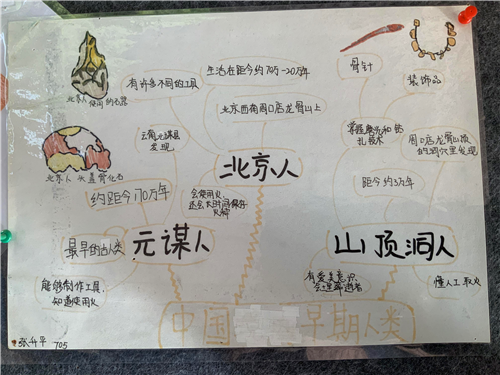 北京人
使用的石器
有许多不同的工具
生活在距今约70万-20万年
骨针
装饰品
云南元谋县
发现
北京西南周口店龙骨山上
周口店龙骨山顶
的洞穴里发现
北京人 头盖骨化石
北京人
约距今170万年
会使用火
距今约3万年
最早的古人类
元谋人
山顶洞人
能够制作工具,
知道使用火
有爱美意识
会埋葬逝者
懂人工取火
中国
早期人类
705